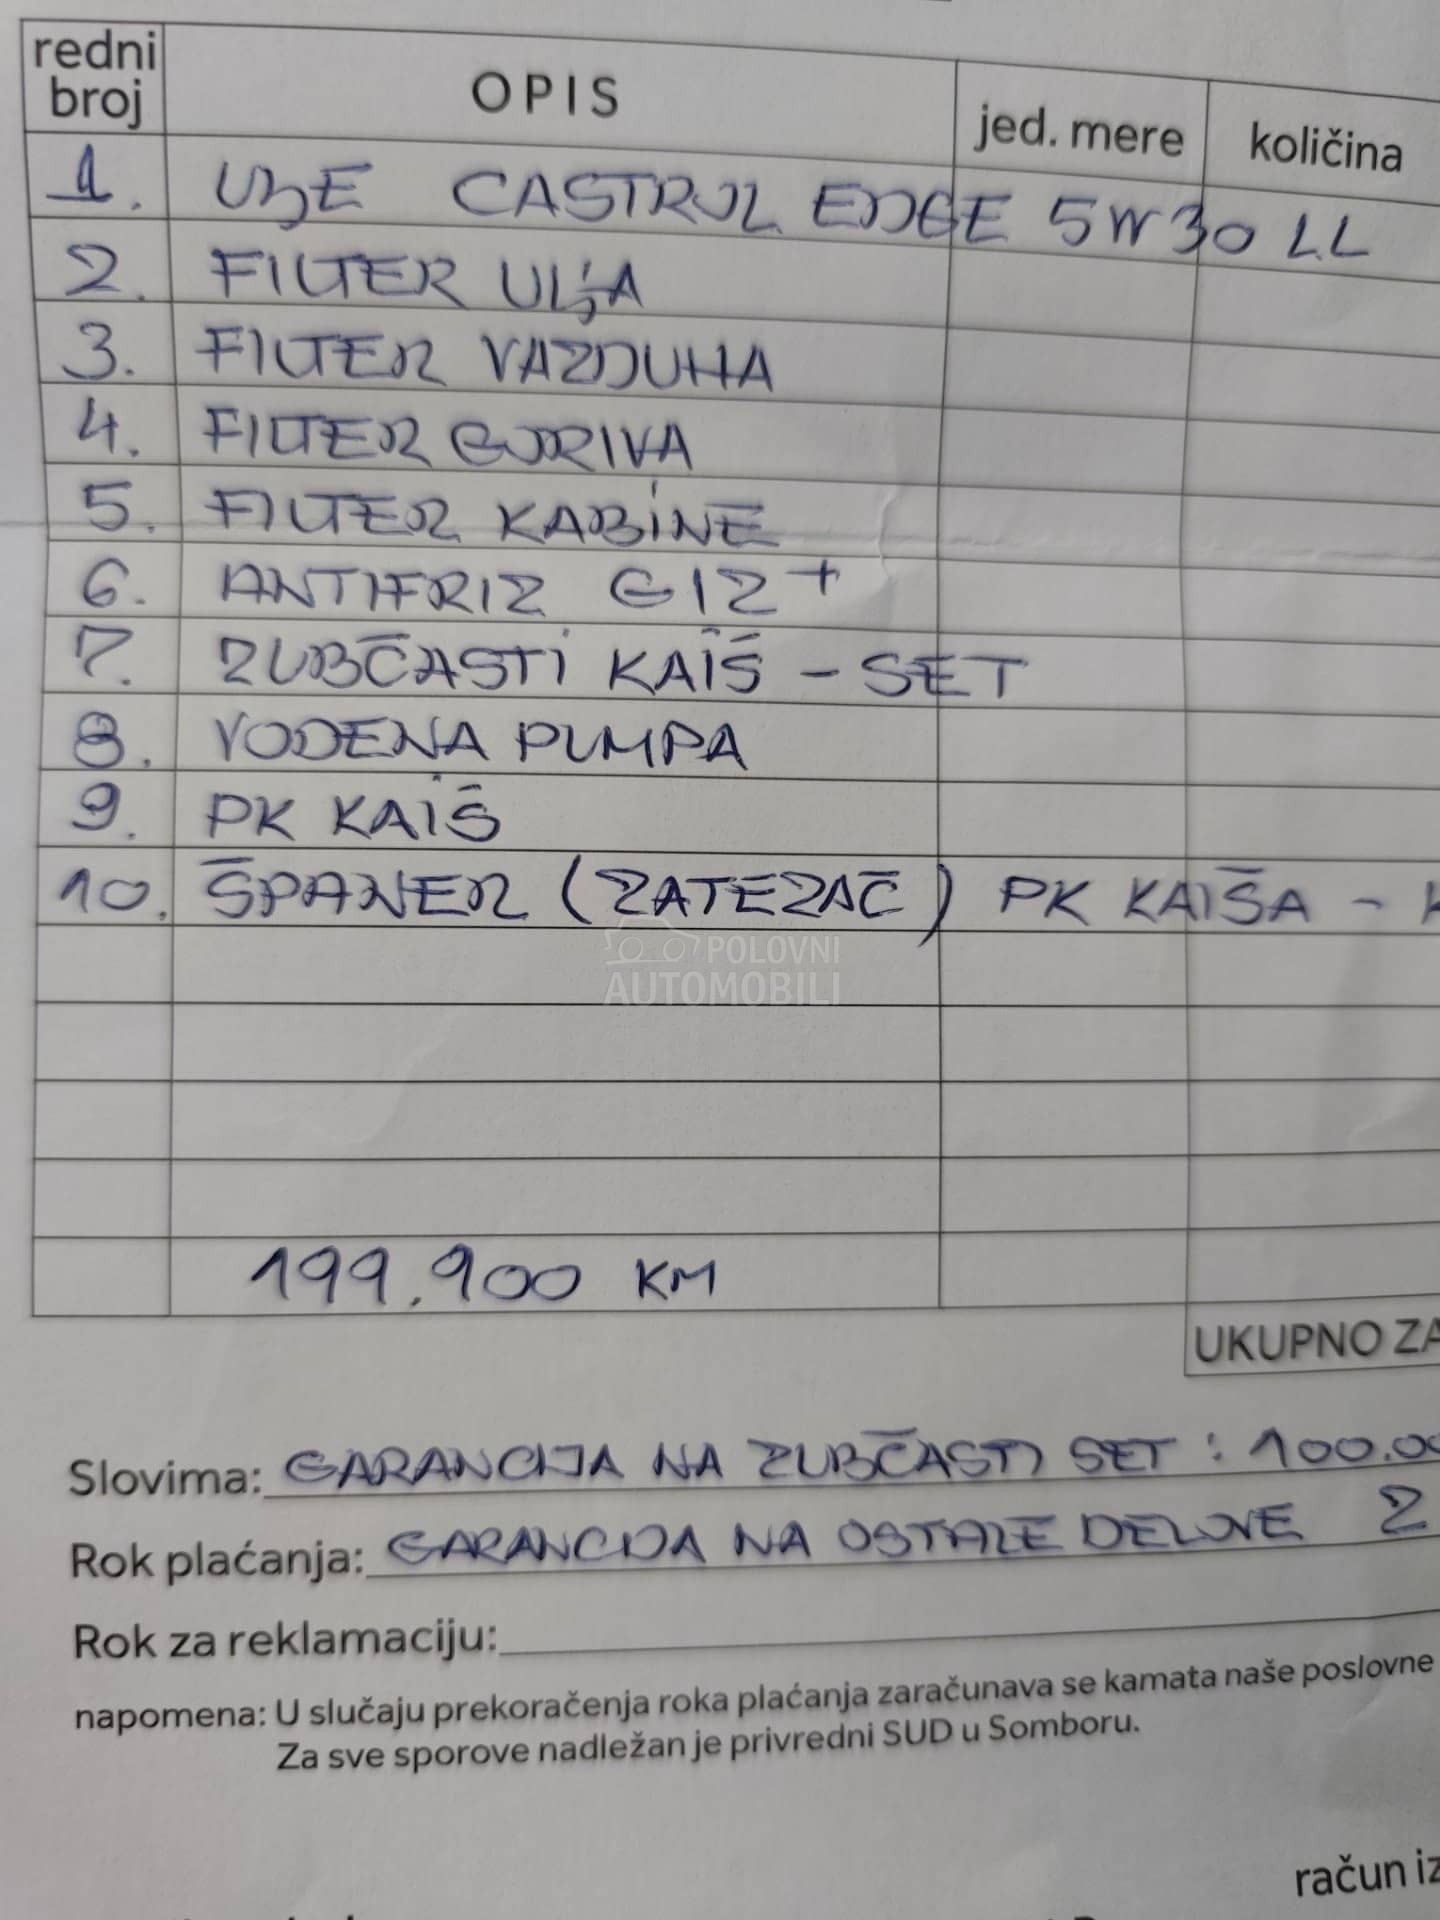 redni broj OPIS jed. mere količina
1. ULJE CASTROL EDGE 5W30 LL
2. FILTER ULJA
3. FILTER VAZDUHA
4. FILTER GORIVA
5. FILTER KABINE
6. ANTIFRIZ G12+
7. ZUBČASTI KAIŠ - SET
8. VODENA PUMPA
9. PK KAIŠ
10. ŠPANER (ZATEZAČ) PK KAIŠA -
POLOVNI
AUTOMOBILI
199.900 KM
UKUPNO ZA
Slovima: GARANCIJA NA ZUBČASTI SET : 100.00
Rok plaćanja: GARANCIJA NA OSTALE DELOVE 2
Rok za reklamaciju:
napomena: U slučaju prekoračenja roka plaćanja zaračunava se kamata naše poslovne
Za sve sporove nadležan je privredni SUD u Somboru.
račun iz